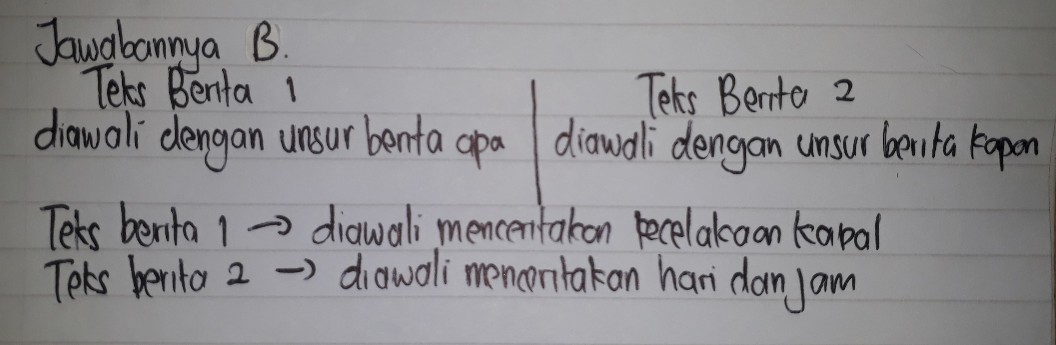 Jawabannya B.
Teks Berita 1 | Teks Berita 2
diawali dengan unsur berita apa | diawali dengan unsur berita kapan
Teks berita 1 → diawali menceritakan kecelakaan kapal
Teks berita 2 → diawali menceritakan hari dan jam